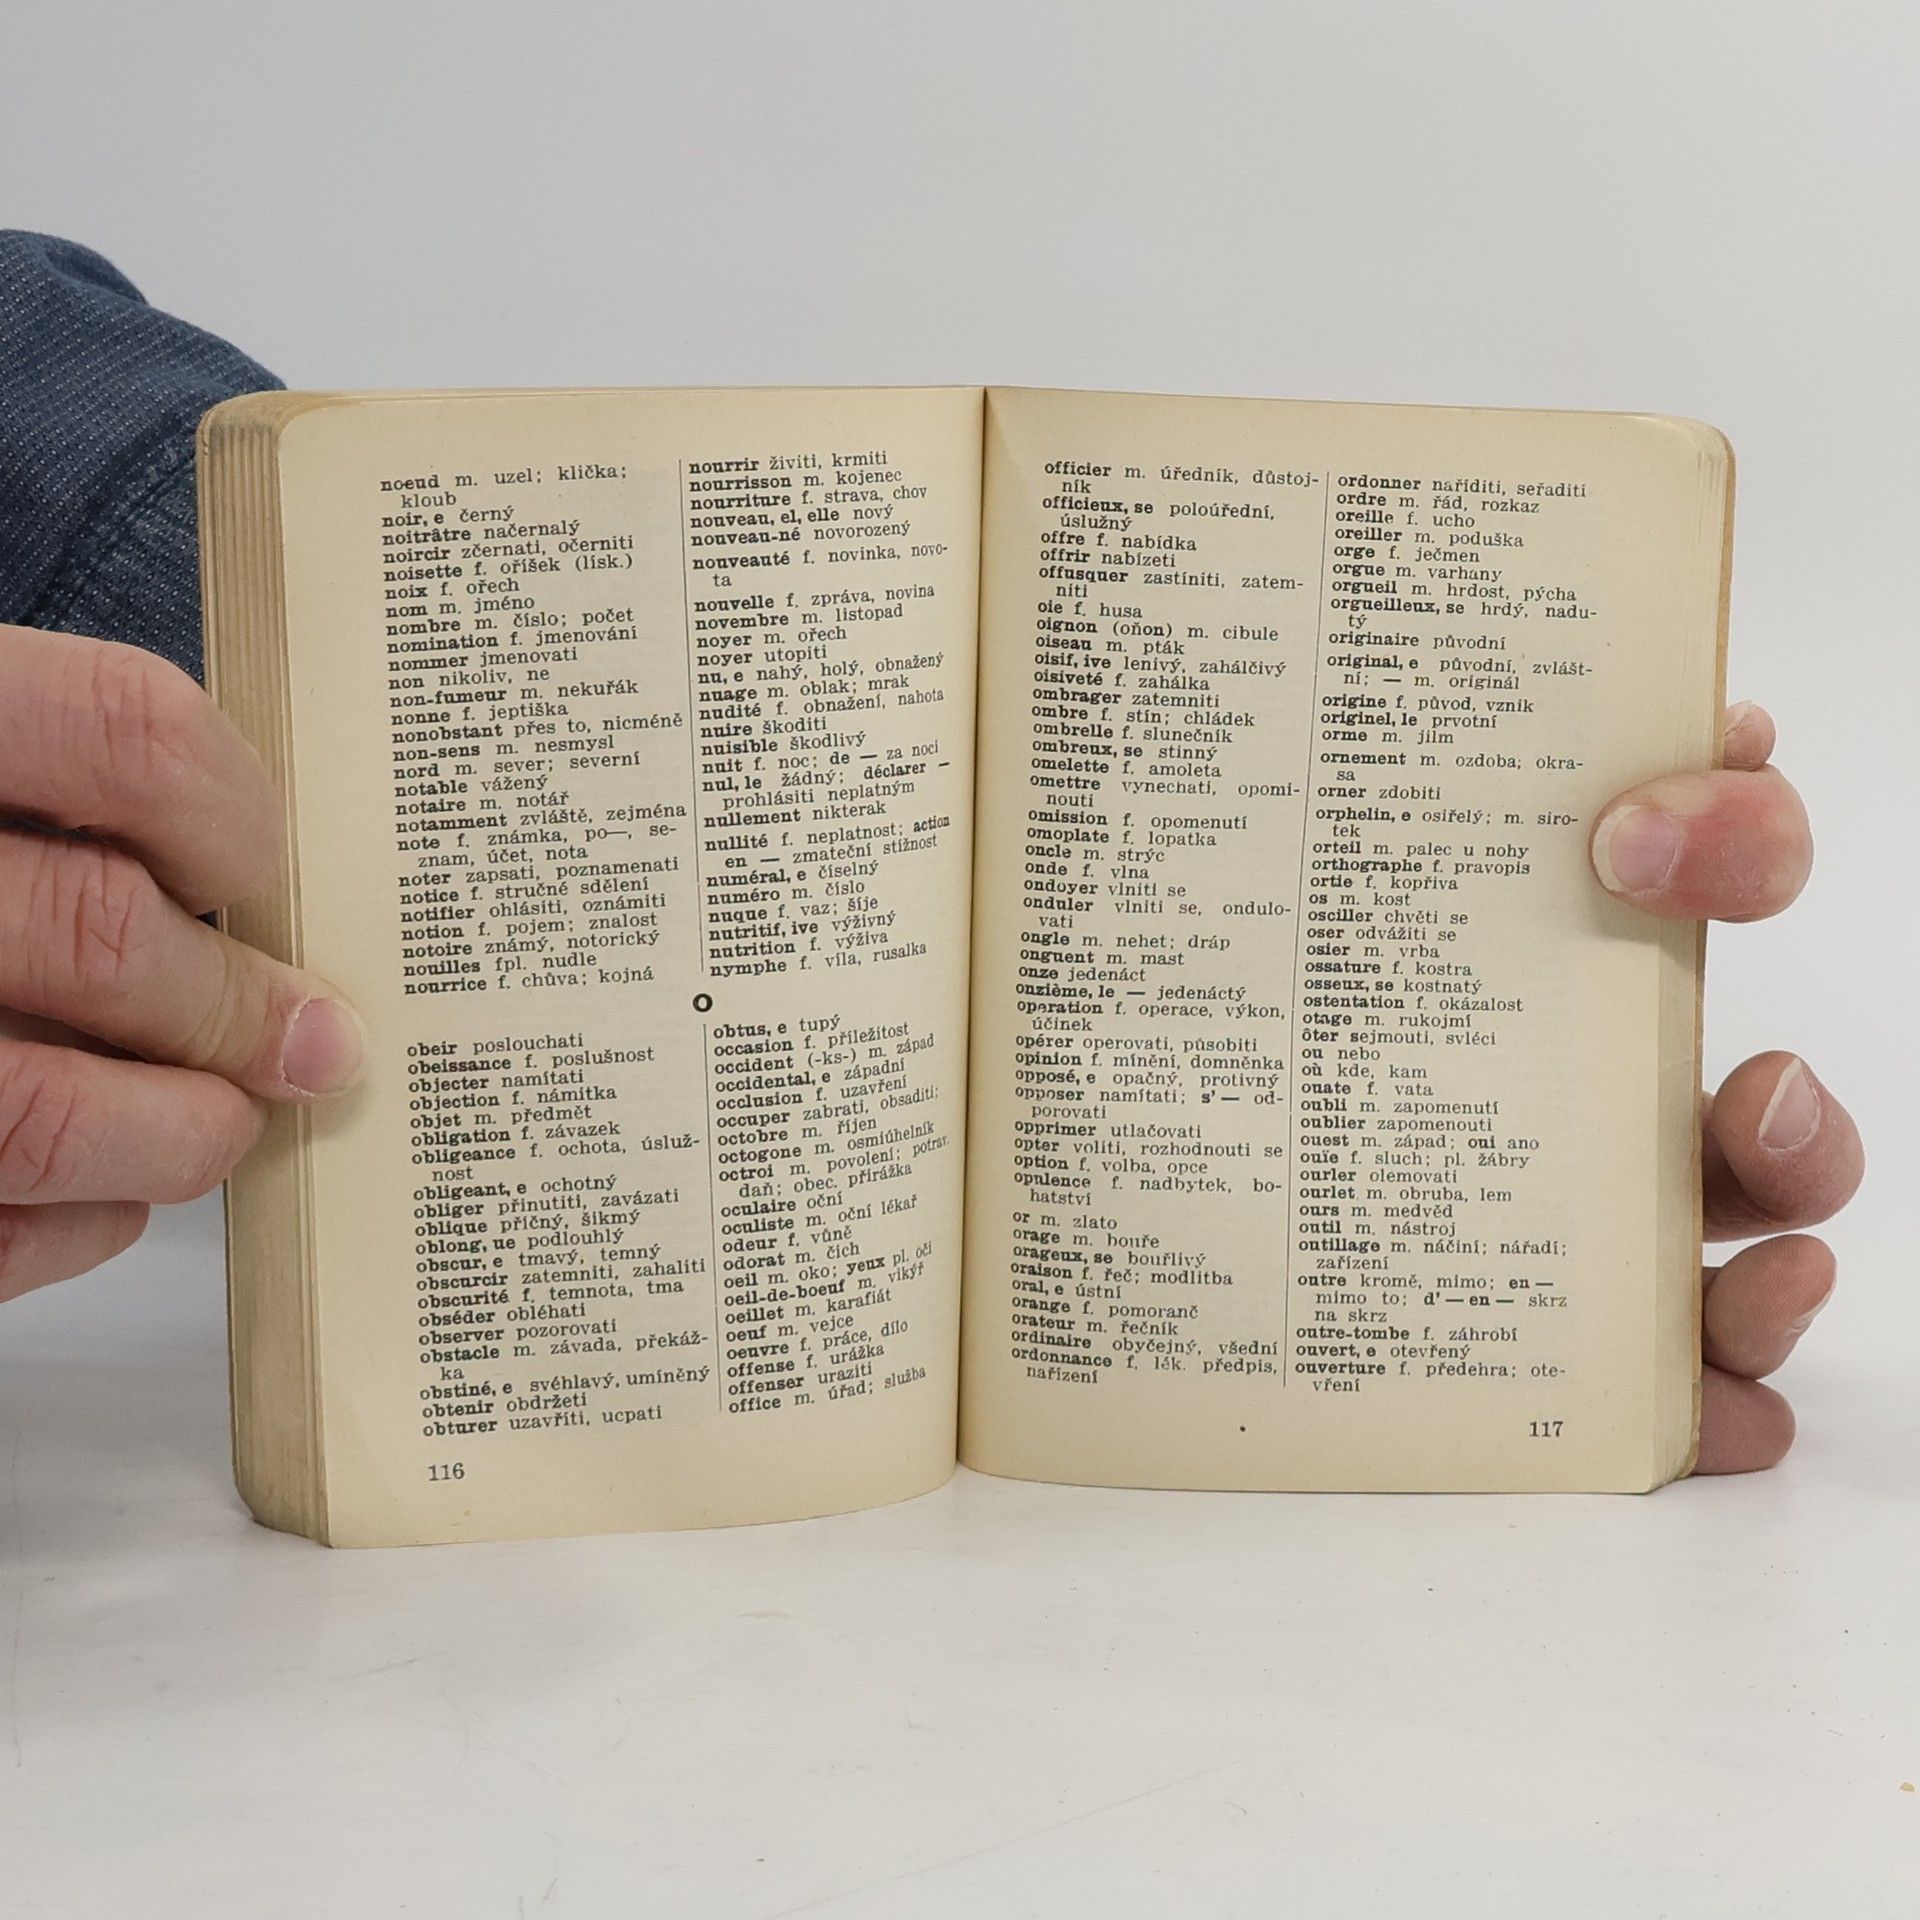 noeud m. uzel; klička;
kloub
noir, e černý
noitrâtre načernalý
noircir zčernati, očerniti
noisette f. oříšek (lísk.)
noix f. ořech
nom m. jméno
nombre m. číslo; počet
nomination f. jmenování
nommer jmenovati
non nikoliv, ne
non-fumeur m. nekuřák
nonne f. jeptiška
nonobstant přes to, nicméně
non-sens m. nesmysl
nord m. sever; severní
notable vážený
notaire m. notář
notamment zvláště, zejména
note f. známka, po—, se-
znam, účet, nota
noter zapsati, poznamenati
notice f. stručné sdělení
notifier ohlásiti, oznámiti
notion f. pojem; znalost
notoire známý, notorický
nouilles fpl. nudle
nourrice f. chůva; kojná
nourrir živiti, krmiti
nourrisson m. kojenec
nourriture f. strava, chov
nouveau, el, elle nový
nouveau-né novorozený
nouveauté f. novinka, novo-
ta
nouvelle f. zpráva, novina
novembre m. listopad
noyer m. ořech
noyer utopiti
nu, e nahý, holý, obnažený
nuage m. oblak; mrak
nudité f. obnažení, nahota
nuire škoditi
nuisible škodlivý
nuit f. noc; de — za noci
nul, le žádný; déclarer —
prohlásiti neplatným
nullement nikterak
nullité f. neplatnost; action
en — zmateční stížnost
numéral, e číselný
numéro m. číslo
nuque f. vaz; šíje
nutritif, ive výživný
nutrition f. výživa
nymphe f. víla, rusalka
O
obeir poslouchati
obeissance f. poslušnost
objecter namítati
objection f. námitka
objet m. předmět
obligation f. závazek
obligeance f. ochota, úsluž-
nost
obligeant, e ochotný
obliger přinutiti, zavázati
oblique příčný, šikmý
oblong, ue podlouhlý
obscur, e tmavý, temný
obscurcir zatemniti, zahaliti
obscurité f. temnota, tma
obséder obléhati
observer pozorovati
obstacle m. závada, překáž-
ka
obstiné, e svéhlavý, umíněný
obtenir obdržeti
obturer uzavříti, ucpati
obtus, e tupý
occasion f. příležitost
occident (-ks-) m. západ
occidental, e západní
occlusion f. uzavření
occuper zabrati, obsaditi;
octobre m. říjen
octogone m. osmiúhelník
octroi m. povolení; potrav.
daň; obec. přirážka
oculaire oční
oculiste m. oční lékař
odeur f. vůně
odorat m. čich
oeil m. oko; yeux pl. oči
oeil-de-boeuf m. vikýř
oeillet m. karafiát
oeuf m. vejce
oeuvre f. práce, dílo
offense f. urážka
offenser uraziti
office m. úřad; služba
116
officier m. úředník, důstoj-
ník
officieux, se poloúřední,
úslužný
offre f. nabídka
offrir nabízeti
offusquer zastíniti, zatem-
niti
oie f. husa
oignon (oňon) m. cibule
oiseau m. pták
oisif, ive lenivý, zahálčivý
oisiveté f. zahálka
ombrager zatemniti
ombre f. stín; chládek
ombrelle f. slunečník
ombreux, se stinný
omelette f. amoleta
omettre vynechati, opomi-
nouti
omission f. opomenutí
omoplate f. lopatka
oncle m. strýc
onde f. vlna
ondoyer vlniti se
onduler vlniti se, ondulo-
vati
ongle m. nehet; dráp
onguent m. mast
onze jedenáct
onzième, le — jedenáctý
operation f. operace, výkon,
účinek
opérer operovati, působiti
opinion f. mínění, domněnka
opposé, e opačný, protivný
opposer namítati; s'— od-
porovati
opprimer utlačovati
opter voliti, rozhodnouti se
option f. volba, opce
opulence f. nadbytek, bo-
hatství
or m. zlato
orage m. bouře
orageux, se bouřlivý
oraison f. řeč; modlitba
oral, e ústní
orange f. pomoranč
orateur m. řečník
ordinaire obyčejný, všední
ordonnance f. lék. předpis,
nařízení
ordonner naříditi, seřaditi
ordre m. řád, rozkaz
oreille f. ucho
oreiller m. poduška
orge f. ječmen
orgue m. varhany
orgueil m. hrdost, pýcha
orgueilleux, se hrdý, nadu-
tý
originaire původní
original, e původní, zvlášt-
ní; — m. originál
origine f. původ, vznik
originel, le prvotní
orme m. jilm
ornement m. ozdoba; okra-
sa
orner zdobiti
orphelin, e osiřelý; m. siro-
tek
orteil m. palec u nohy
orthographe f. pravopis
ortie f. kopřiva
os m. kost
osciller chvěti se
oser odvážiti se
osier m. vrba
ossature f. kostra
osseux, se kostnatý
ostentation f. okázalost
otage m. rukojmí
ôter sejmouti, svléci
ou nebo
où kde, kam
ouate f. vata
oubli m. zapomenutí
oublier zapomenouti
ouest m. západ; oui ano
ouïe f. sluch; pl. žábry
ourler olemovati
ourlet m. obruba, lem
ours m. medvěd
outil m. nástroj
outillage m. náčiní; nářadí;
zařízení
outre kromě, mimo; en —
mimo to; d'— en — skrz
na skrz
outre-tombe f. záhrobí
ouvert, e otevřený
ouverture f. předehra; ote-
vření
117